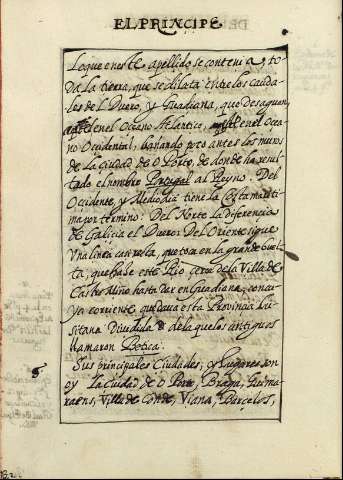 EL PRINCIPE
Lo que en este apellido se contenia, to
da la tierra, que se dilata entre los cauda
les del Duero, y Guadiana, que desaguen,
aquel en el Oceano Atlantico, en el Ocea
no Occidental, bañando poco antes los muros
de la ciudad de O Porto, de donde ha resul
tado el nombre Portugal al Reyno. Del
Occidente, y Mediodia tiene la Costa mariti
ma por termino. Del Norte la diferencia
de Galicia el Duero: Del Oriente sigue
Una linea can recta, que toca en la grande buel
ta, que haze este Rio cerca de la Villa de
Castro Miño hasta dar en Guadiana, con cu
ya corriente quedava esta Provincia Lu
sitana Dividida de la que los antiguos
llamaron Betica.
Sus principales Ciudades, y Lugares son
oy La Ciudad de O Porto, Braga, Guima
raens, Villa de Conde, Viana, Barcelos,